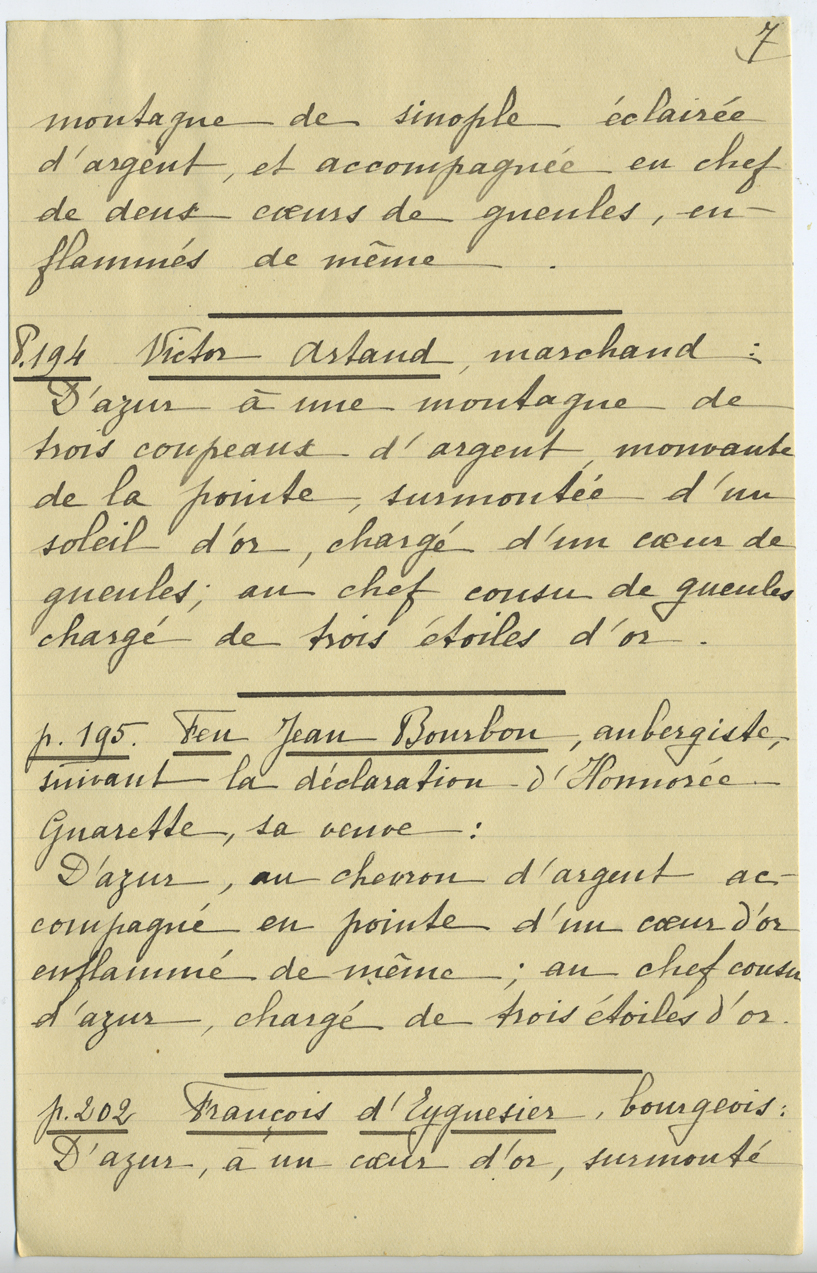 7
montagne de sinople éclairée
d'argent, et accompagnée en chef
de deux cœurs de gueules, en-
flammés de même .
P.194 Victor Artaud, marchand :
D'azur à une montagne de
trois coupeaux d'argent, mouvante
de la pointe, surmontée d'un
soleil d'or, chargé d'un cœur de
gueules; au chef cousu de gueules
chargé de trois étoiles d'or .
p.195. Feu Jean Bourbon, aubergiste,
suivant la déclaration d'Honnorée
Guarette, sa veuve :
D'azur, au chevron d'argent ac-
compagné en pointe d'un cœur d'or
enflammé de même ; au chef cousu
d'azur, chargé de trois étoiles d'or.
p.202 François d'Eyguesier, bourgeois :
D'azur, à un cœur d'or, surmonté